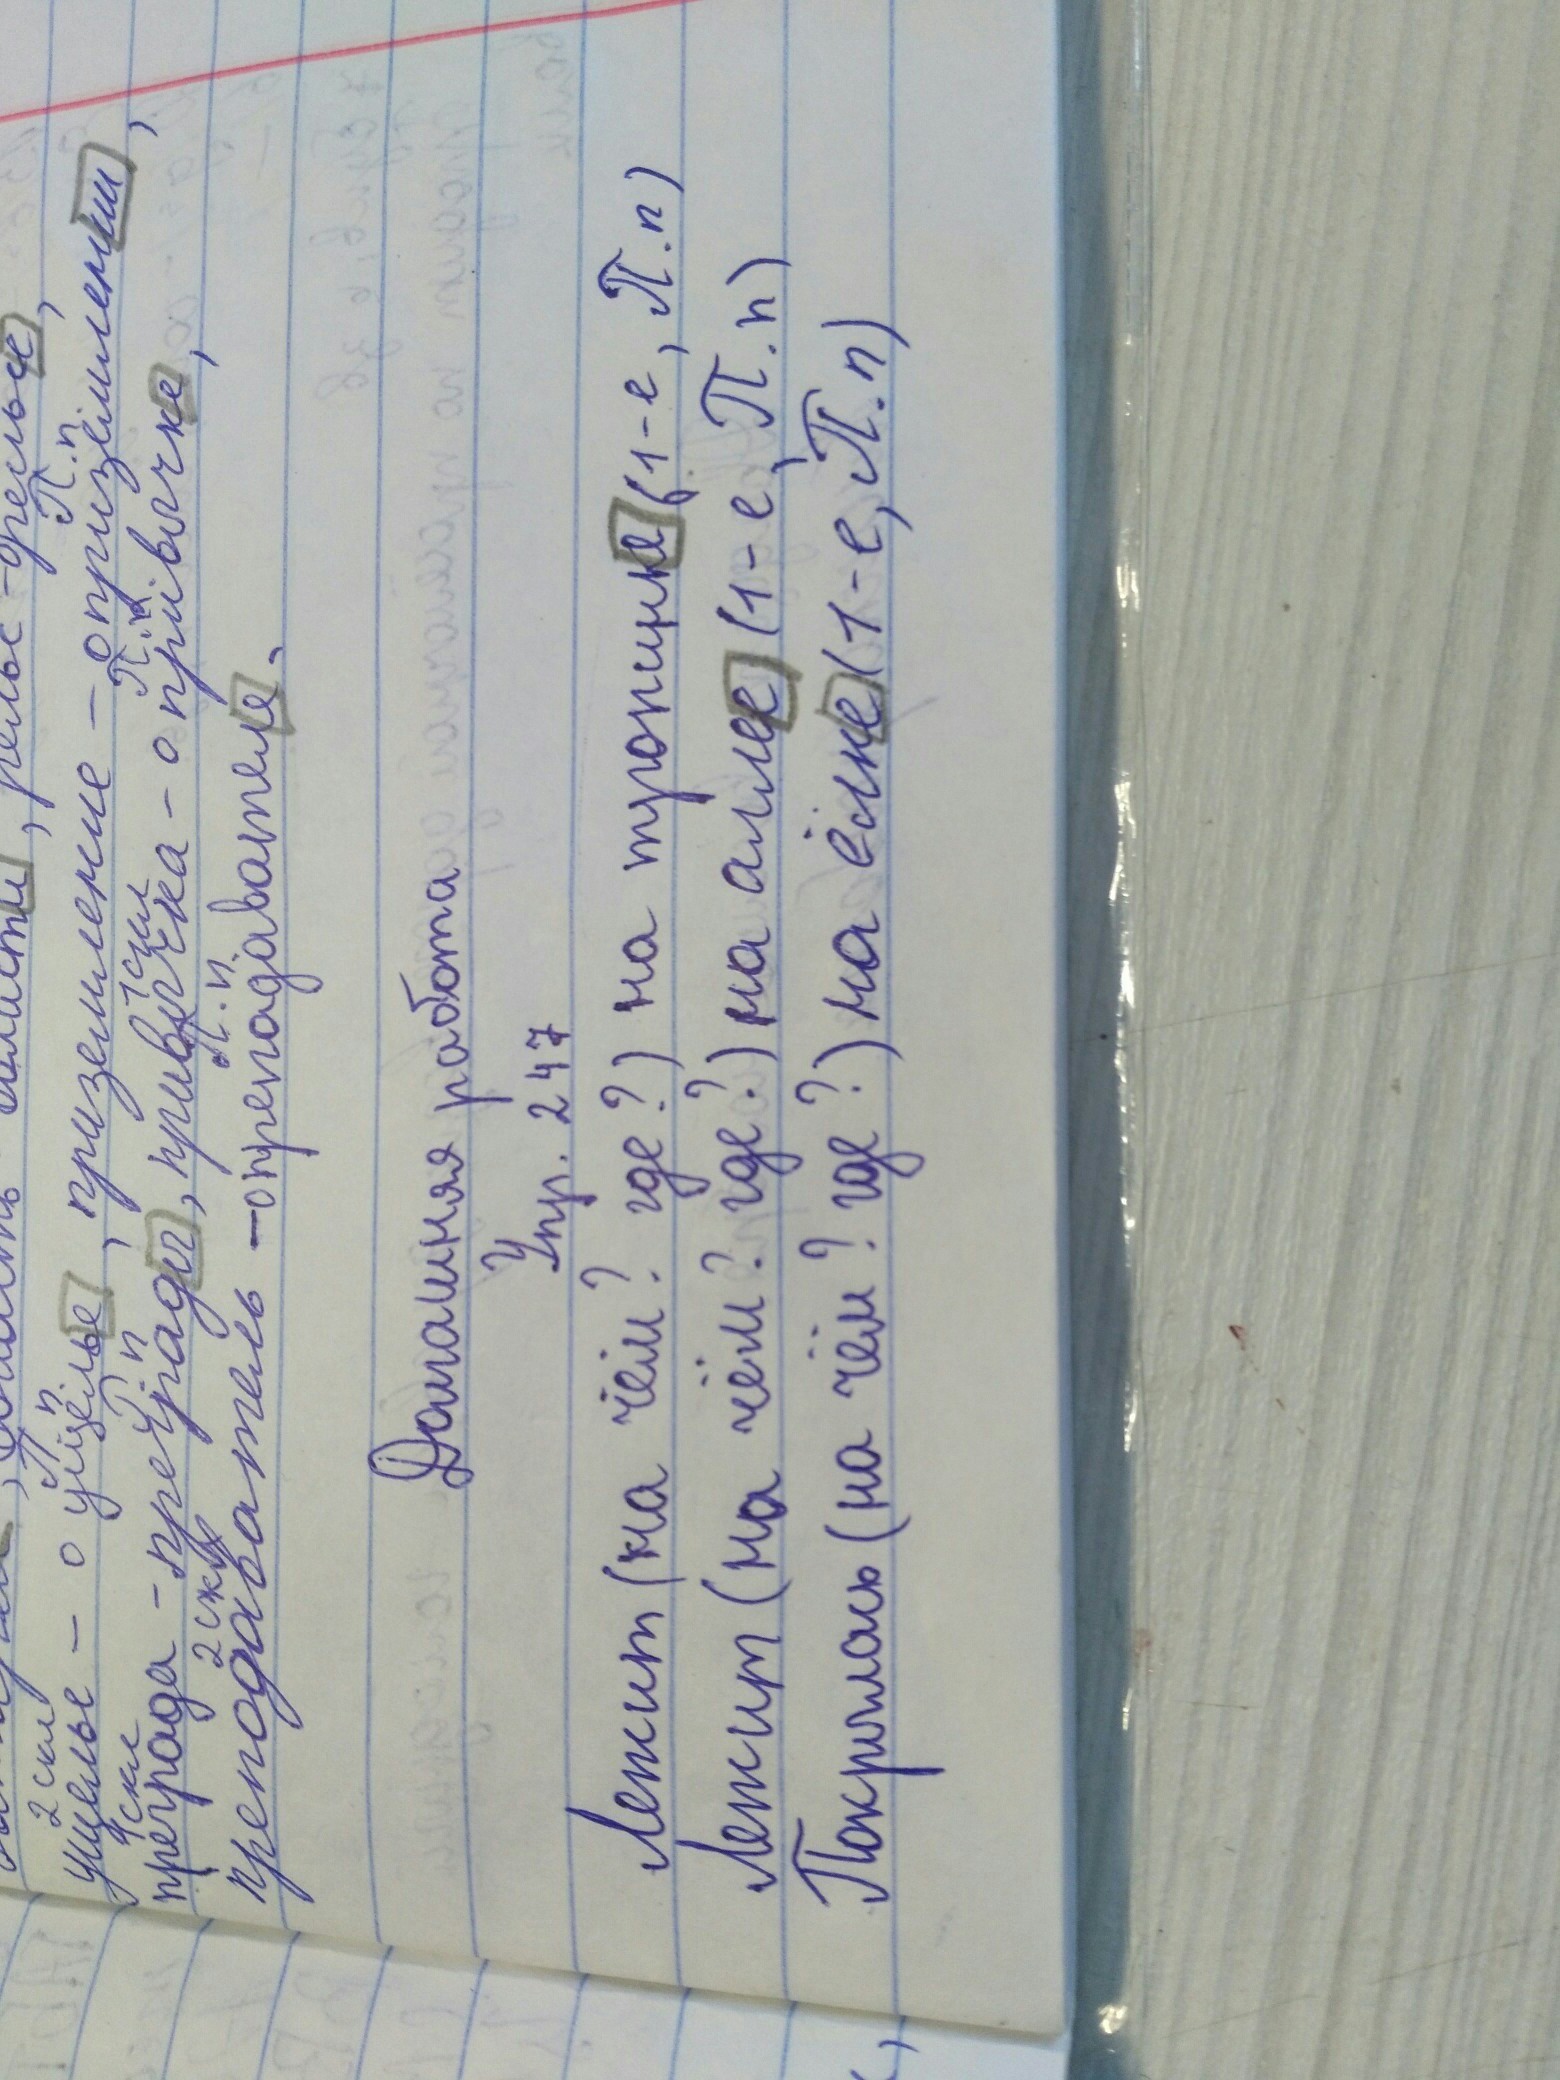 , рельс - о рельсе,
2 скл П.п П.п
ущелье - о ущелье, приземление - о приземлении,
1 скл П.п 1 скл П.п
преграда - преграды, привычка - о привычке,
2 скл П.п.
преподаватель - о преподавателе.
Домашняя работа
Упр. 247
Лежит (на чём? где?) на тропинке (1-е, П.п)
Лежит (на чём? где?) на аллее (1-е, П.п)
Покрылась (на чём? где?) на ёлке (1-е, П.п)